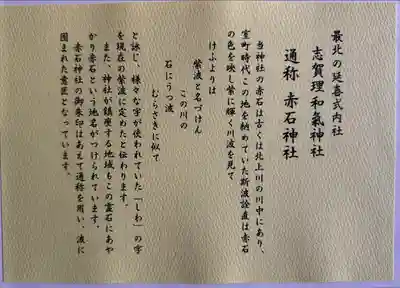 最北の延喜式内社
志賀理和氣神社
通称 赤石神社
当神社の赤石は古くは北上川の川中にあり、
室町時代この地を納めていた斯波詮直は赤石
の色を映し紫に輝く川波を見て
けふよりは
紫波と名づけん
この川の
石にうつ波
むらさきに似て
と詠じ、様々な字が使われていた「しわ」の字
を現在の紫波に定めたと伝わります。
また、神社が鎮座する地域もこの霊石にあや
かり赤石という地名がつけられています。
赤石神社の御朱印はあえて通称を用い、波に
囲まれた意匠となっています。